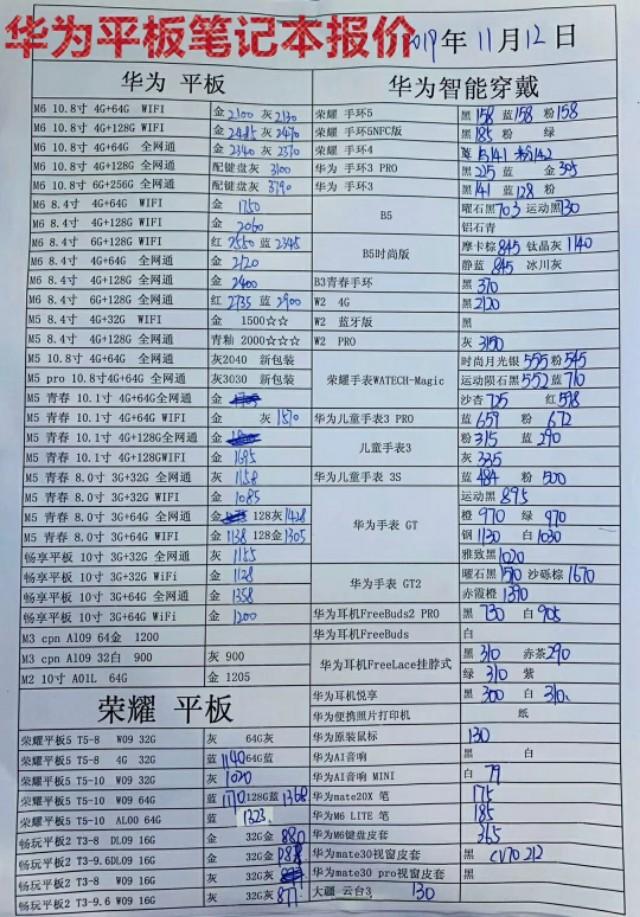 华为平板笔记本报价
2019年11月12日
华为 平板
M6 10.8寸 4G+64G WIFI 金2100 灰2130
M6 10.8寸 4G+128G WIFI 金2485 灰2470
M6 10.8寸 4G+64G 全网通 金2340 灰2370
M6 10.8寸 4G+128G 全网通 配键盘灰 3100
M6 10.8寸 6G+256G 全网通 配键盘灰 3790
M6 8.4寸 4G+64G WIFI 金 1750
M6 8.4寸 4G+128G WIFI 金 2060
M6 8.4寸 6G+128G WIFI 红 2550 蓝 2345
M6 8.4寸 4G+64G 全网通 金 2120
M6 8.4寸 4G+128G 全网通 金 2400
M6 8.4寸 6G+128G 全网通 红 2735 蓝 2900
M5 8.4寸 4G+32G WIFI 金 1500☆☆
M5 8.4寸 4G+128G 全网通 青釉 2000☆☆☆
M5 10.8寸 4G+64G 全网通 灰2040 新包装
M5 pro 10.8寸4G+64G 全网通 灰3030 新包装
M5 青春 10.1寸 4G+64G全网通 金
M5 青春 10.1寸 4G+64G WIFI 金 灰1570
M5 青春 10.1寸 4G+128G全网通 金
M5 青春 10.1寸 4G+128GWIFI 金 1695
M5 青春 8.0寸 3G+32G 全网通 灰 1158
M5 青春 8.0寸 3G+32G WIFI 金 1085
M5 青春 8.0寸 3G+64G 全网通 金 128灰1428
M5 青春 8.0寸 3G+64G WIFI 金 1138 128金1305
畅享平板 10寸 3G+32G 全网通 灰 1155
畅享平板 10寸 3G+32G WiFi 金 1128
畅享平板 10寸 3G+64G 全网通 金 1358
畅享平板 10寸 3G+64G WiFi 金 1200
M3 cpn A109 64金 1200
M3 cpn A109 32白 900 灰 900
M2 10寸 A01L 64G 金 1205
荣耀 平板
荣耀平板5 T5-8 W09 32G 灰 64G灰
荣耀平板5 T5-8 4G 32G 蓝 1140 64G蓝
荣耀平板5 T5-10 W09 32G 灰 1020
荣耀平板5 T5-10 W09 64G 蓝 1170 128G蓝 1368
荣耀平板5 T5-10 AL00 64G 蓝 1323
畅玩平板2 T3-8 DL09 16G 金 32G金 880
畅玩平板2 T3-9.6DL09 16G 金 32G金
畅玩平板2 T3-8 W09 16G 灰 32G灰
畅玩平板2 T3-9.6 W09 16G 灰 32G灰 877
华为智能穿戴
荣耀 手环5 黑 158 蓝158 粉158
荣耀 手环5NFC版 黑 185 粉 绿
荣耀 手环4 141 粉142
华为 手环3 PRO 黑 225 蓝 金 305
华为 手环3 黑 141 蓝 128 粉
B5 曜石黑703 运动黑730
铝石青
B5时尚版 摩卡棕 845 钛晶灰 1140
静蓝 845 冰川灰
B3青春手环 黑 370
W2 4G 黑 2120
W2 蓝牙版 黑
W2 PRO 灰 3150
荣耀手表WATECH-Magic 时尚月光银 555 粉545
运动陨石黑 552 蓝 710
沙杏 725 红 598
华为儿童手表3 PRO 蓝 659 粉 672
儿童手表3 粉 315 蓝 290
灰 335
华为儿童手表 3S 蓝 484 粉 500
华为手表 GT 运动黑 895
橙 970 绿 970
钢 1120 白 1030
雅致黑1020
华为手表 GT2 曜石黑1510 沙砾棕 1670
赤霞橙 1390
华为耳机FreeBuds2 PRO 黑 730 白 905
华为耳机FreeBuds 白
华为耳机FreeLace挂脖式 黑 310 赤茶290
绿 310 紫
华为耳机悦享 黑 300 白 310
华为便携照片打印机 纸
华为原装鼠标 130
华为AI音响 黑 白
华为AI音响 MINI 白 79
华为mate20X 笔 175
华为M6 LITE 笔 185
华为M6键盘皮套 365
华为mate30视窗皮套 黑 CV70 212
华为mate30 pro视窗皮套 黑
大疆 云台3 130